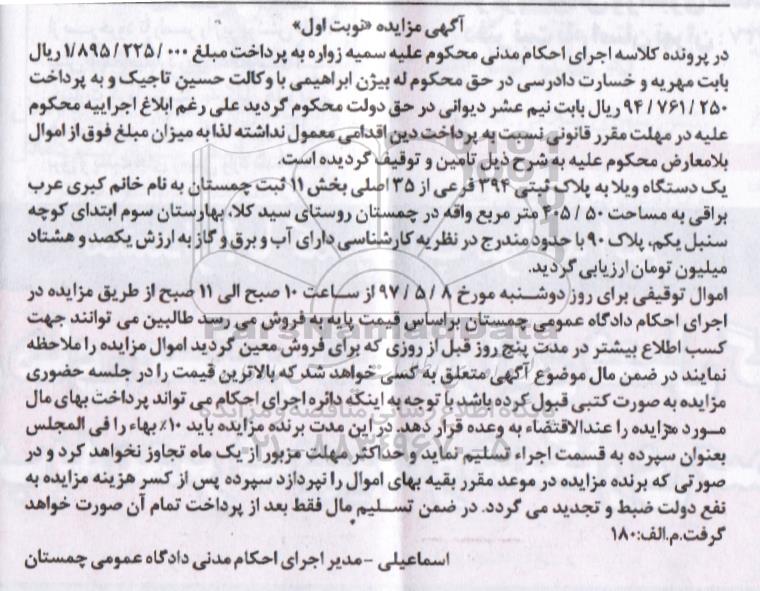 آگهی مزایده «نوبت اول»
در پرونده کلاسه اجرای احکام مدنی محکوم علیه سمیه زواره به پرداخت مبلغ ۱/۸۹۵/۲۲۵/۰۰۰ ریال
بابت مهریه و خسارت دادرسی در حق محکوم له بیژن ابراهیمی با وکالت حسین تاجیک و به پرداخت
۹۴/۷۶۱/۲۵۰ ریال بابت نیم عشر دیوانی در حق دولت محکوم گردید علی رغم ابلاغ اجراییه محکوم
علیه در مهلت مقرر قانونی نسبت به پرداخت دین اقدامی معمول نداشته لذا به میزان مبلغ فوق از اموال
بلامعارض محکوم علیه به شرح ذیل تامین و توقیف گردیده است.
یک دستگاه ویلا به پلاک ثبتی ۳۹۴ فرعی از ۳۵ اصلی بخش ۱۱ ثبت چمستان به نام خانم کبری عرب
براقی به مساحت ۴۰۵/۵۰ متر مربع واقه در چمستان روستای سید کلا، بهارستان سوم ابتدای کوچه
سنبل یکم، پلاک ۹۰ با حدود مندرج در نظریه کارشناسی دارای آب و برق و گاز به ارزش یکصد و هشتاد
میلیون تومان ارزیابی گردید.
اموال توقیفی برای روز دوشنبه مورخ ۹۷/۵/۸ از ساعت ۱۰ صبح الی ۱۱ صبح از طریق مزایده در
اجرای احکام دادگاه عمومی چمستان براساس قیمت پایه به فروش می رسد طالبین می توانند جهت
کسب اطلاع بیشتر در مدت پنج روز قبل از روزی که برای فروش معین گردید اموال مزایده را ملاحظه
نمایند در ضمن مال موضوع آگهی متعلق به کسی خواهد شد که بالاترین قیمت را در جلسه حضوری
مزایده به صورت کتبی قبول کرده باشد با توجه به اینکه دائره اجرای احکام می تواند پرداخت بهای مال
مورد مزایده را عندالاقتضاء به وعده قرار دهد. در این مدت برنده مزایده باید ۱۰٪ بهاء را فی المجلس
بعنوان سپرده به قسمت اجراء تسلیم نماید و حداکثر مهلت مزبور از یک ماه تجاوز نخواهد کرد و در
صورتی که برنده مزایده در موعد مقرر بقیه بهای اموال را نپردازد سپرده پس از کسر هزینه مزایده به
نفع دولت ضبط و تجدید می گردد. در ضمن تسلیم مال فقط بعد از پرداخت تمام آن صورت خواهد
گرفت.م.الف:۱۸۰
اسماعیلی -مدیر اجرای احکام مدنی دادگاه عمومی چمستان
ParsNamadData
پایگاه اطلاع رسانی مناقصه و مزایده
۰۲۱-۸۸۳۴۹۶۷۰-۵